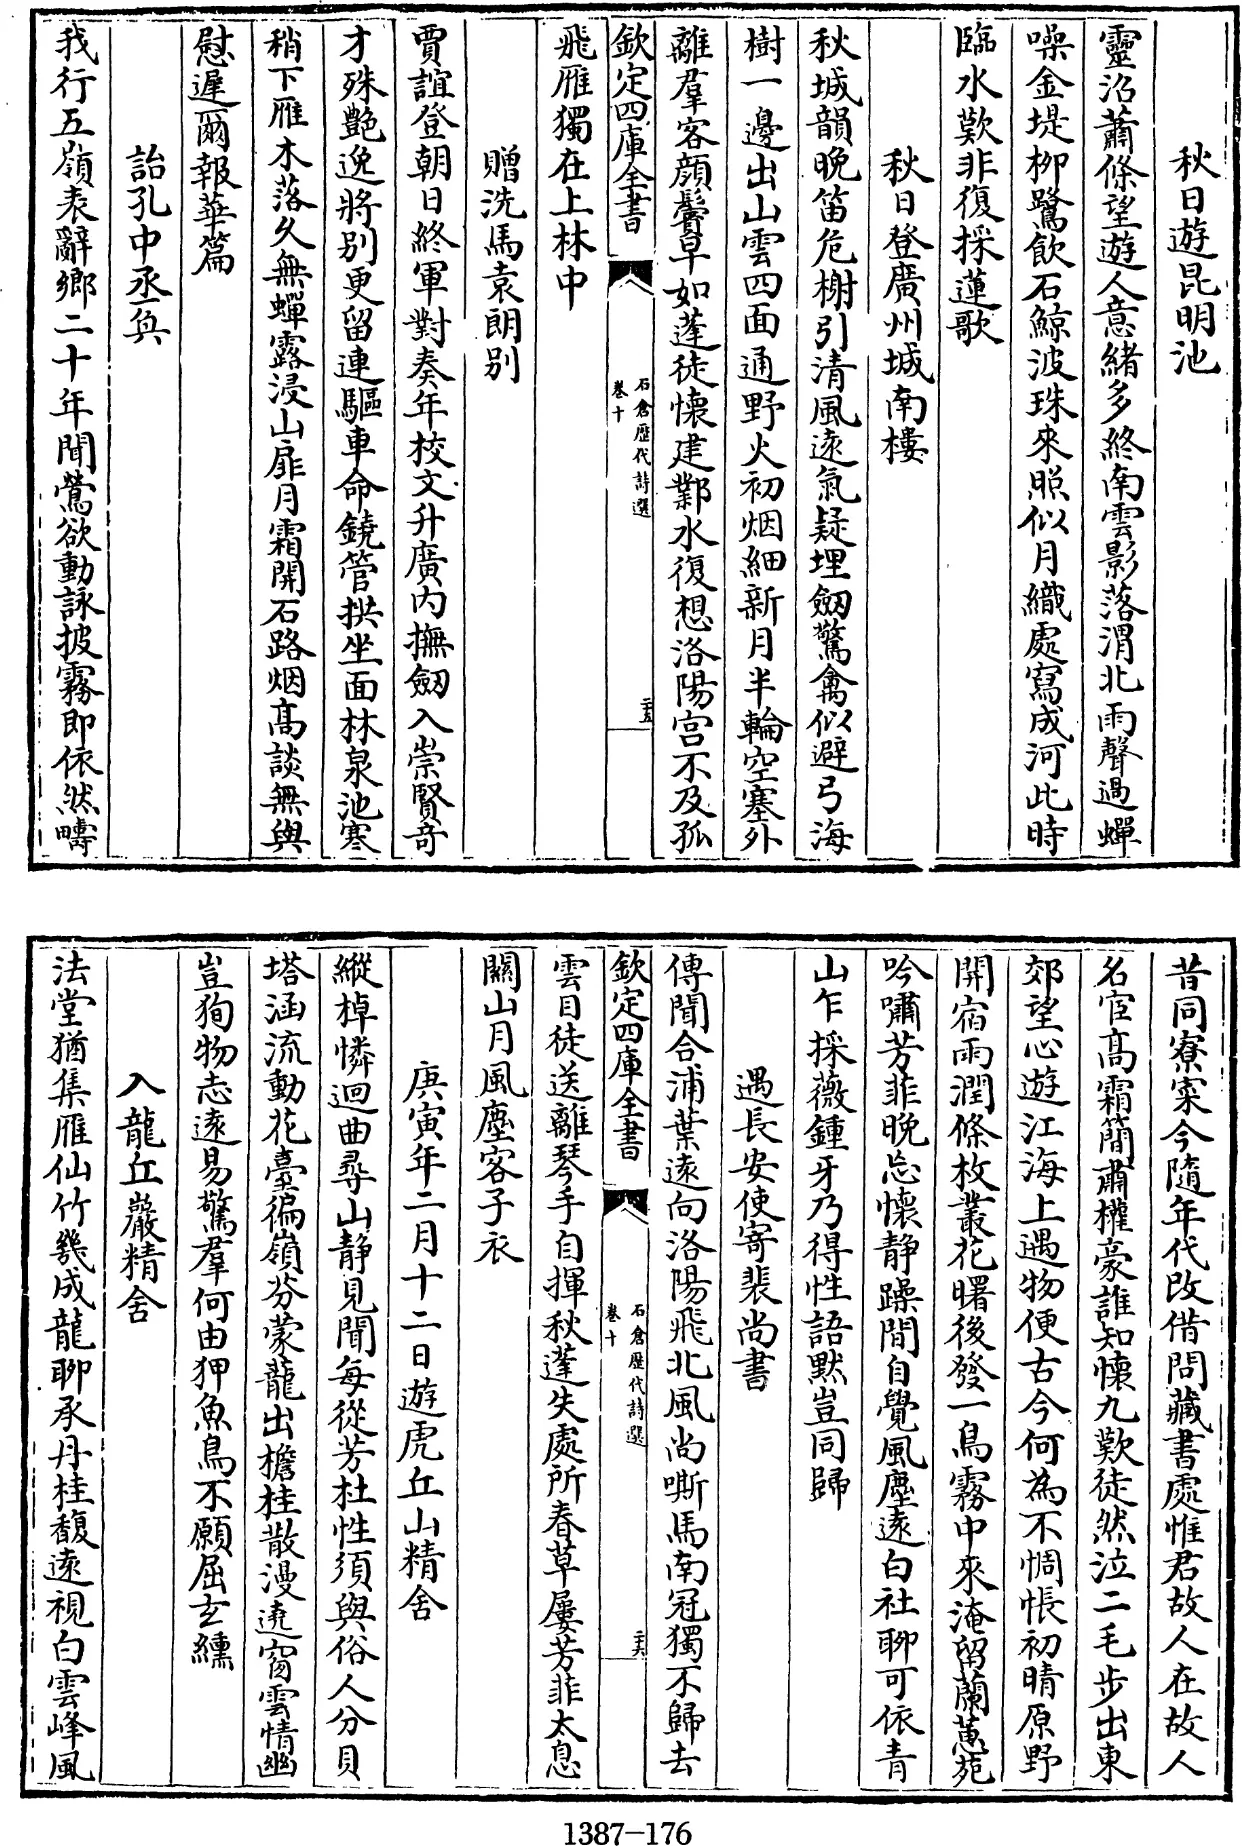 秋日遊昆明池
靈沼蕭條望遊人意緒多終南雲影落渭北雨聲過蟬
噪金堤柳鷺飲石鯨波珠來照似月織處寫成河此時
臨水歎非復採蓮歌
秋日登廣州城南樓
秋城韻晚笛危榭引清風遠氣疑埋劔驚禽似避弓海
樹一邊出山雲四面通野火初烟細新月半輪空塞外
離羣客顔鬢早如蓬徒懷建鄴水復想洛陽宫不及孤
欽定四庫全書
石倉歷代詩選
卷十
二十五
飛雁獨在上林中
贈洗馬袁朗别
賈誼登朝日終軍對奏年校文升廣内撫劔入崇賢奇
才殊艷逸將别更留連驅車命鐃管拱坐面林泉池寒
稍下雁木落久無蟬露浸山扉月霜開石路烟髙談無與
慰遲爾報華篇
詒孔中丞奐
我行五嶺表辭鄉二十年聞鶯欲動詠披霧即依然疇
昔同寮寀今隨年代改借問藏書處惟君故人在故人
名宦髙霜簡肅權豪誰知懷九歎徒然泣二毛步出東
郊望心遊江海上遇物便古今何為不惆悵初晴原野
開宿雨潤條枚叢花曙後發一鳥霧中來淹留蘭蕙苑
吟嘯芳菲晚忘懷静躁間自覺風塵遠白社聊可依青
山乍採薇鍾牙乃得性語黙豈同歸
遇長安使寄裴尚書
傳聞合浦葉遠向洛陽飛北風尚嘶馬南冠獨不歸去
欽定四庫全書
石倉歷代詩選
卷十
二十六
雲目徒送離琴手自揮秋蓬失處所春草屢芳菲太息
關山月風塵客子衣
庚寅年二月十二日遊虎丘山精舍
縱棹憐迴曲尋山静見聞每從芳杜性須與俗人分貝
塔涵流動花臺徧嶺芬蒙蘢出檐桂散漫遶窗雲情幽
豈狥物志遠易驚羣何由狎魚鳥不願屈玄纁
入龍丘巖精舍
法堂猶集雁仙竹幾成龍聊承丹桂馥遠視白雲峰風
1387-176